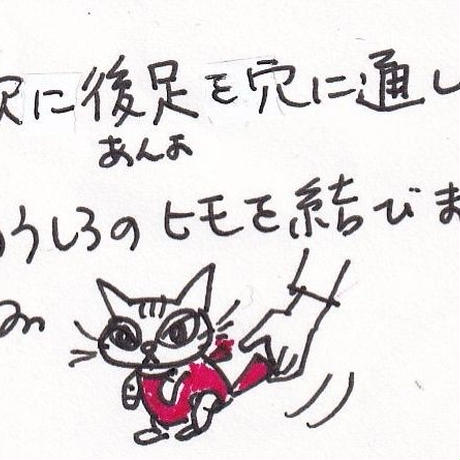 次に後足を穴に通し
あんよ
うしろのヒモを結びま